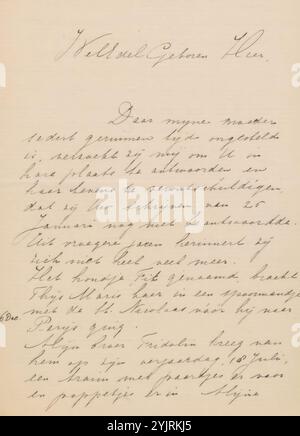 WelEdelGeboren Heer,
Daar mijne moeder
sedert geruimen tijd ongesteld
is, verzocht zij mij om U in
hare plaats te antwoorden en
haar tevens te verontschuldigen,
dat zij Uw schrijven van 25
Januari nog niet beantwoordde.
Uit vroegere jaren herinnert zij
zich niet heel veel meer.
Het hondje Fik genaamd bracht
Thijs Maris haar in een spoormandje
6 Dec. met de St. Nicolaas voor hij naar
Parijs ging.
Mijn broer Fridolin kreeg van
hem op zijn verjaardag, 18 Juli,
een tram met paardjes er voor
en poppetjes er in. Mijne
alamy
Image ID: 2YJRKJ5
www.alamy.com